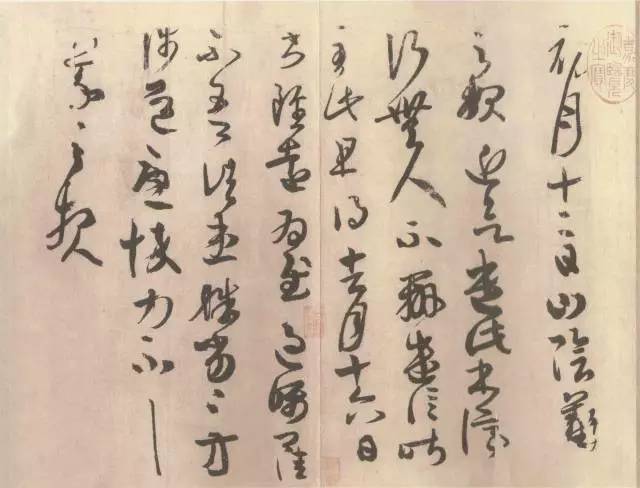 嘉慶御覽之寶
初月十二日山陰羲
之報近欲遣此書停
行無人不辦遣信昨
至此且得去月十六日
書雖遠為慰過囑卿佳
不吾諸患殊劣劣方
涉道憂悴力不具
羲之報